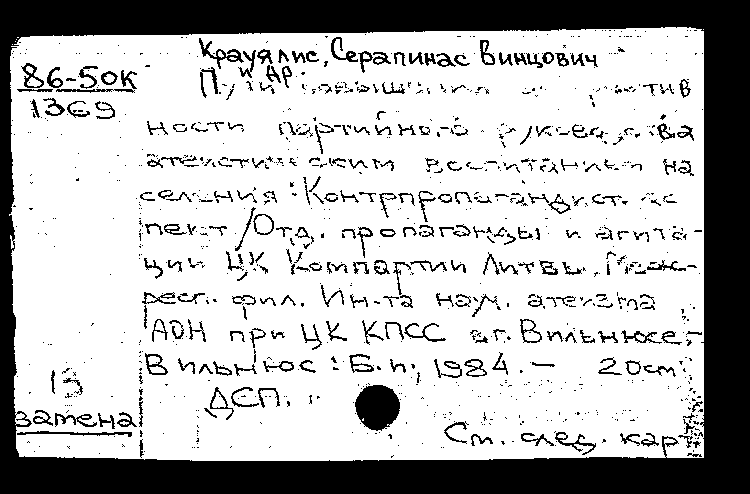 Крауялис, Серапинас Винцович
86-50к
и др.
1369
Пути повышения эффектив
ности партийного руководства
атеистическим воспитанием на
селения: Контрпропагандист. ас
пект / Отд. пропаганды и агита-
ции ЦК Компартии Литвы, Меж-
респ. фил. Ин-та науч. атеизма
АОН при ЦК КПСС в г. Вильнюсе.-
Вильнюс: Б.и., 1984. - 20 см
13
ДСП.
замена
См. след. карт